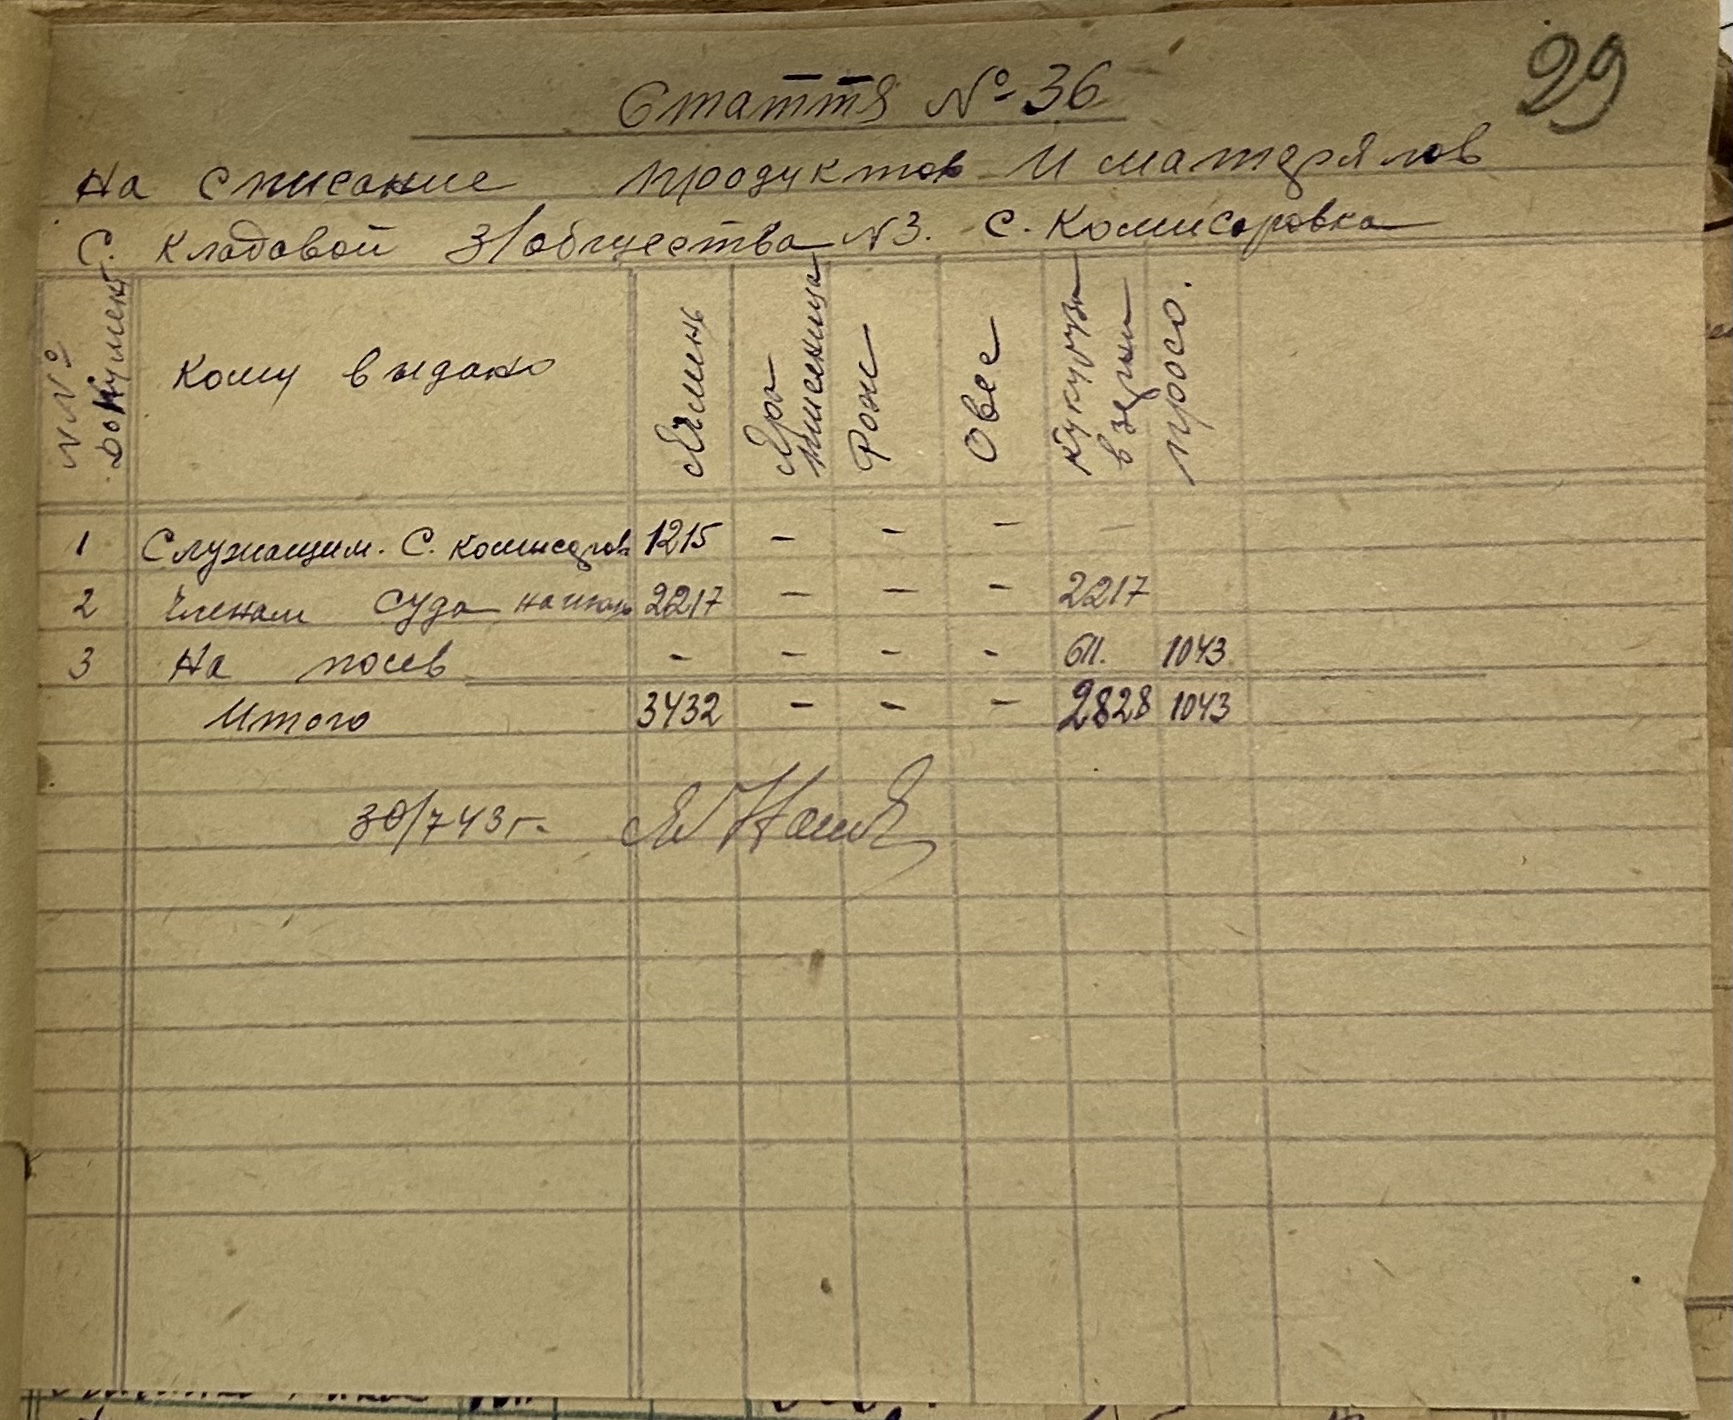 29
Стаття № 36
на списание продуктов и матерялов
С. Кладовой З/общества N3. С. Комисаровка
№№ Документ Кому выдано Ячмень Яро пшеница Рож Овес Кукуруза в зерни просо.
1 Служащим. С. Комисаров 1215 - - -
2 Членам Суда 2217 - - - 2217
3 На посев - - - - 611. 1043
Итого 3432 - - - 2828 1043
30/7 43 г.